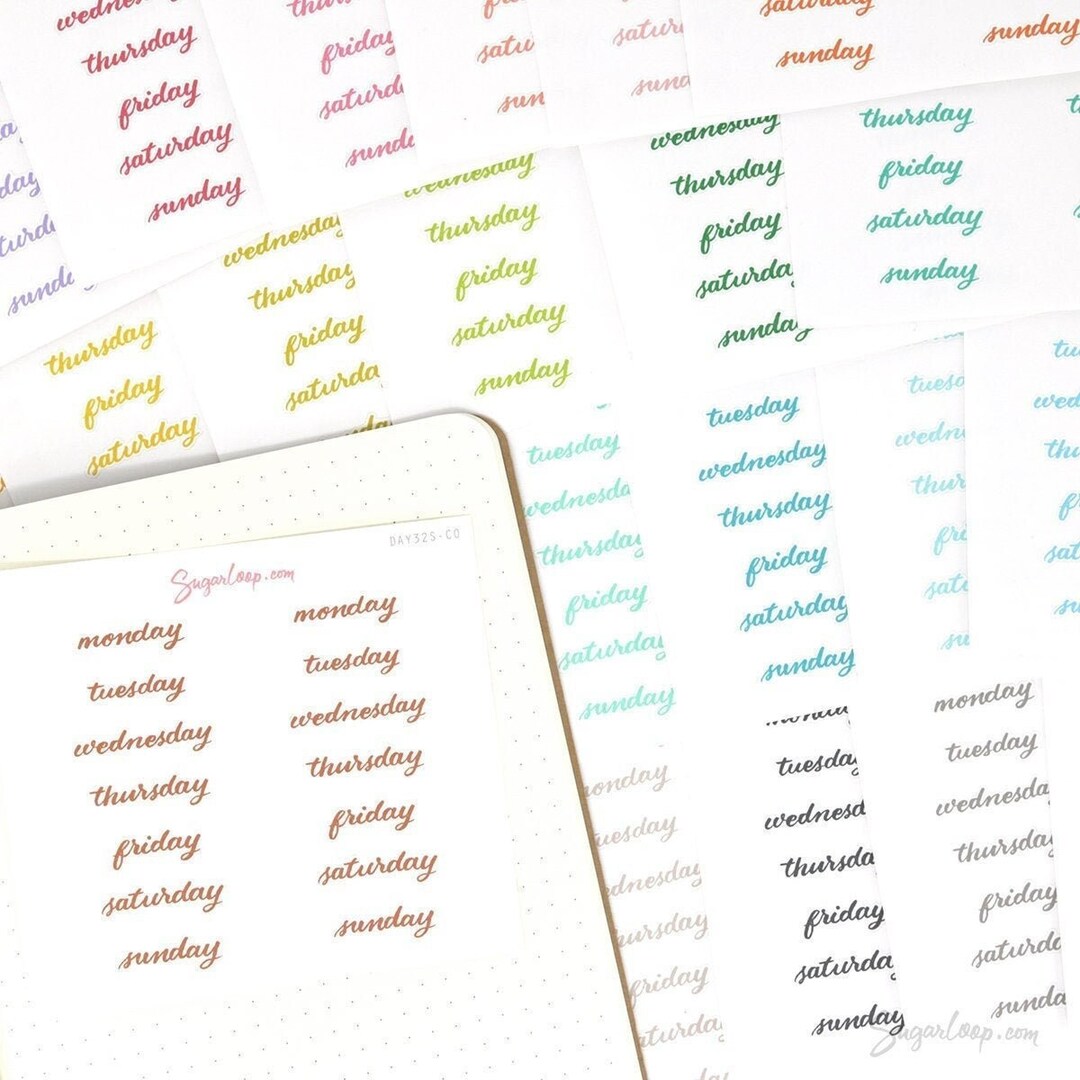 wednesday
thursday
friday
saturday
sunday
friday
saturd
sunda
satu
sun
satu
sun
saturday
sunday
sunday
day
sund
thursday
friday
saturday
wednesday
thursday
friday
saturda
wednesday
thursday
friday
saturday
sunday
wednesday
thursday
friday
saturda
sunday
thursday
friday
saturday
sunday
tuesday
wednesda
thursday
friday
saturda
sunday
tuesday
wednesday
thursday
friday
saturday
sunday
tuesd
wedn
thur
fr
sat
su
tu
wed
th
f
sat
su
DAY32S-CO
Sugarloop.com
monday
tuesday
wednesday
thursday
friday
saturday
sunday
monday
tuesday
wednesday
thursday
friday
saturday
sunday
onday
uesday
dnesday
hursday
friday
aturda
sunday
tuesday
wednesd
thursda
friday
saturda
sunday
monday
tuesday
wednesda
thursday
friday
saturda
sunda
Sugarloop.com